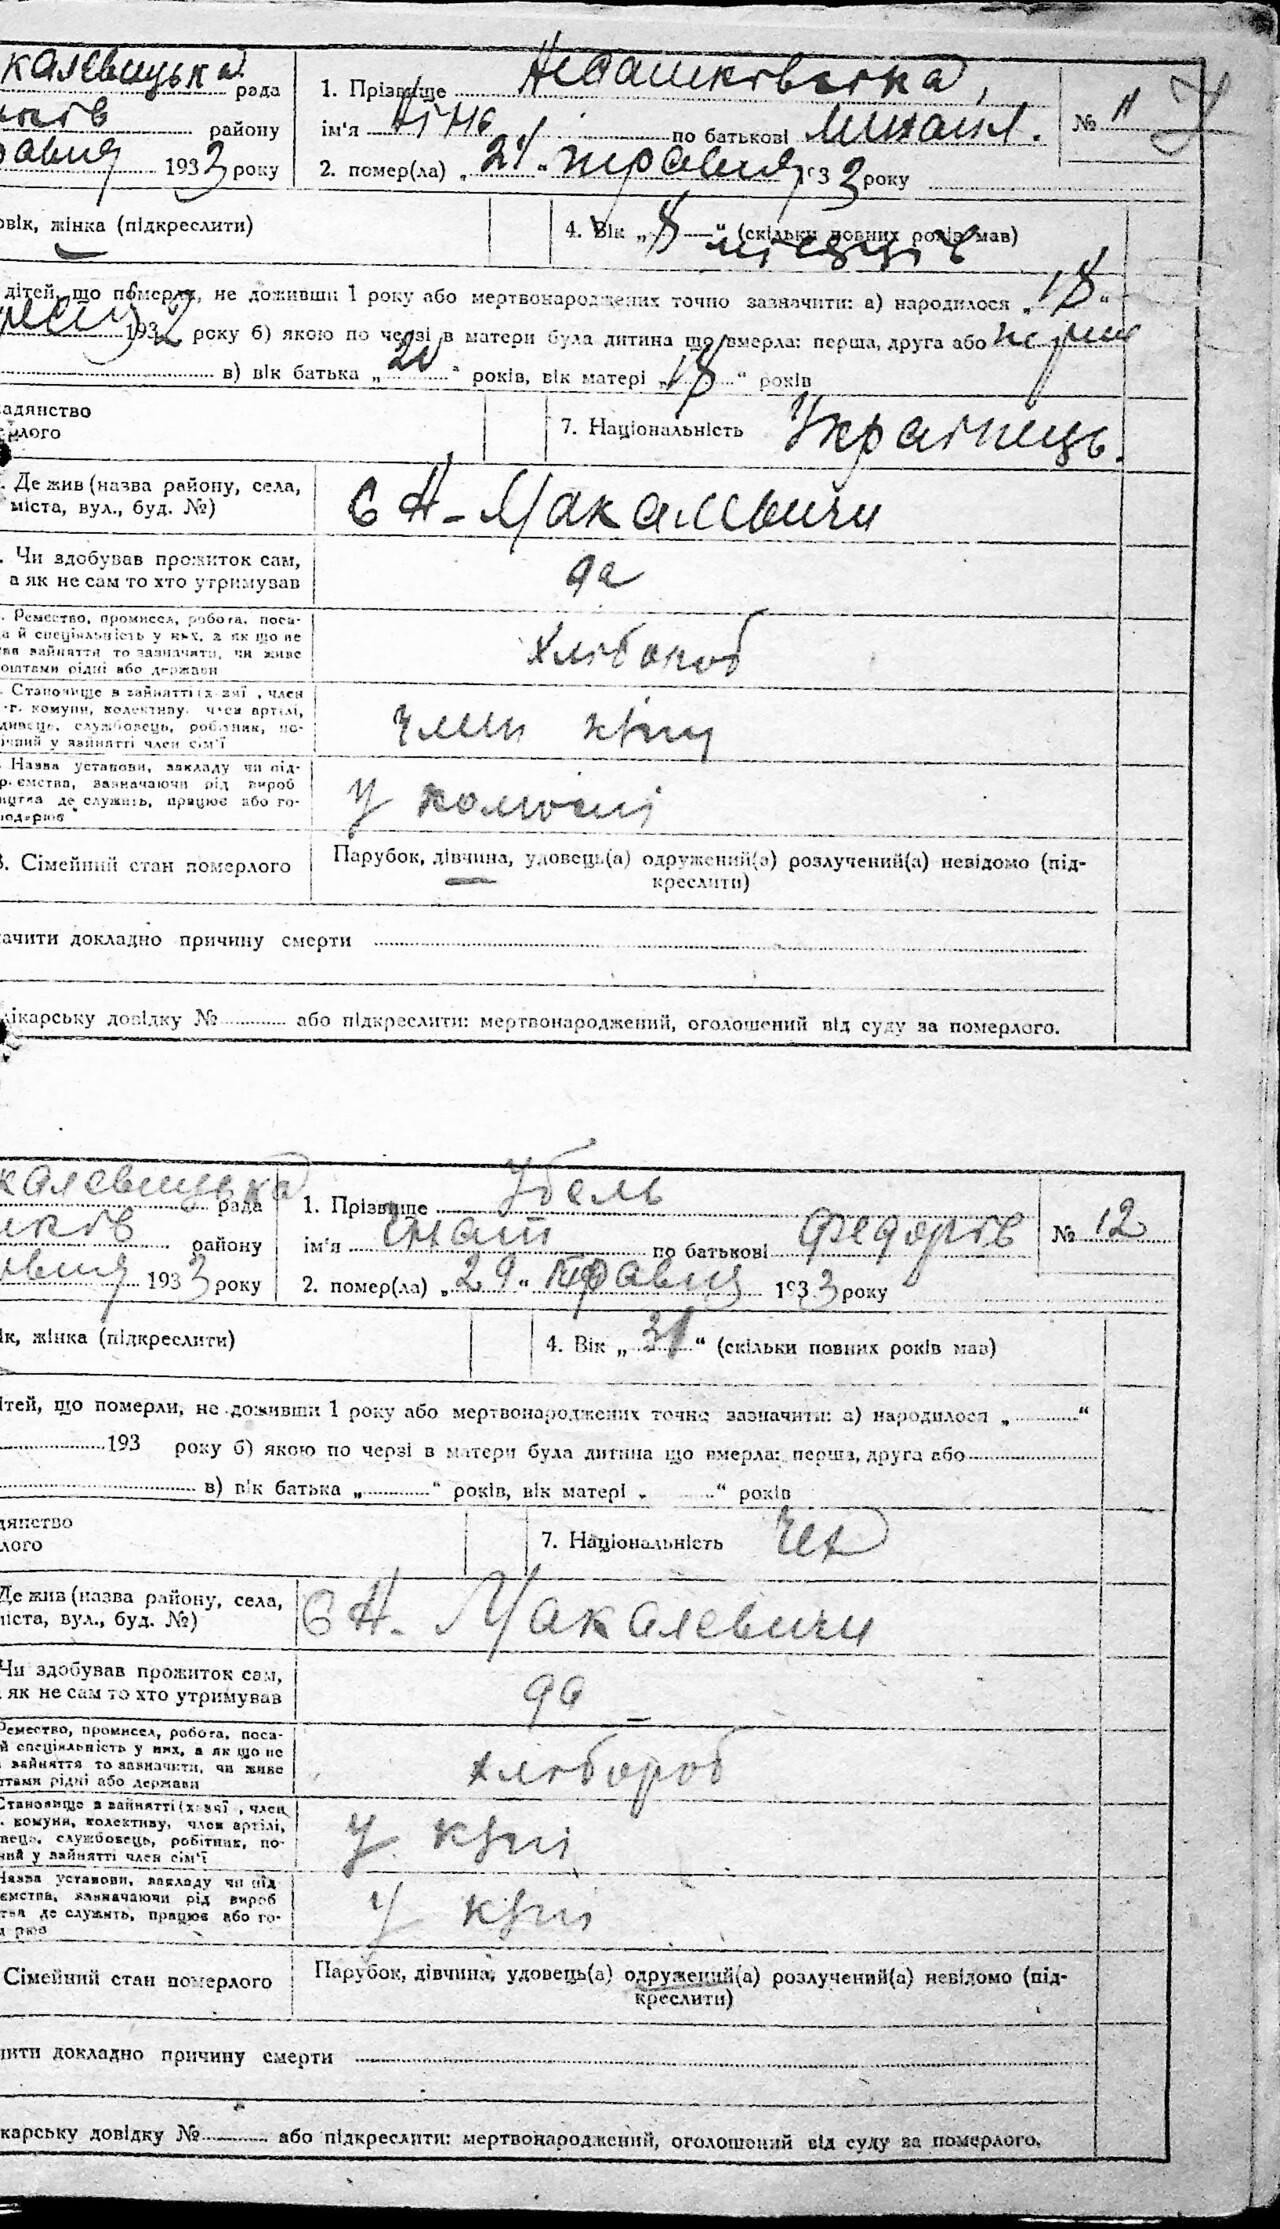 калевицька рада
1. Прізвище Небашківська,
№ 11
ків району
ім'я Ніна по батькові Михайл.
равня 1933 року
2. помер(ла) „21“ травня 1933 року
овік, жінка (підкреслити)
4. Вік „8“ (скільки повних років мав)
місяців
дітей, що померли, не доживши 1 року або мертвонароджених точно зазначити: а) народилося „18“
1932 року б) якою по черзі в матери була дитина що вмерла: перша, друга або перша
в) вік батька „20“ років, вік матері „18“ років
адянство
ерлого
7. Національність Українець.
. Де жив (назва району, села,
міста, вул., буд. №)
с Н-Макалевичи
. Чи здобував прожиток сам,
а як не сам то хто утримував
да
. Ремество, промисел, робота, поса-
а й спеціяльність у них, а як що не
ав зайняття то зазначити, чи живе
оштами рідні або держави
Хлібороб
. Становище в зайнятті (хазяї, член
-г. комуни, колективу, член артілі,
дивець, службовець, робітник, по-
ічний у зайнятті член сім'ї
член
. Назва установи, закладу чи під-
р. ємства, зазначаючи рід вироб
ництва де служить, працює або го-
подарює
у колгоспі
3. Сімейний стан померлого
Парубок, дівчина, удовець(а) одружений(а) розлучений(а) невідомо (під-
креслити)
ачити докладно причину смерти
лікарську довідку № або підкреслити: мертвонароджений, оголошений від суду за померлого.
калевицька рада
1. Прізвище Убель
№ 12
иків району
ім'я Гнат по батькові Федорів
равня 1933 року
2. помер(ла) „29“ травня 1933 року
ік, жінка (підкреслити)
4. Вік „31“ (скільки повних років мав)
ітей, що померли, не доживши 1 року або мертвонароджених точно зазначити: а) народилося „ “
193 року б) якою по черзі в матери була дитина що вмерла: перша, друга або
в) вік батька „ “ років, вік матері „ “ років
дянство
лого
7. Національність Чех
Де жив (назва району, села,
міста, вул., буд. №)
с Н-Макалевичи
Чи здобував прожиток сам,
а як не сам то хто утримував
да
Ремество, промисел, робота, поса-
й спеціяльність у них, а як що не
зайняття то зазначити, чи живе
штами рідні або держави
хлібороб
Становище в зайнятті (хазяї, член
. комуни, колективу, член артілі,
вець, службовець, робітник, по-
ний у зайнятті член сім'ї
у
Назва установи, закладу чи під
ємства, зазначаючи рід вироб
тва де служить, працює або го-
у
Сімейний стан померлого
Парубок, дівчина, удовець(а) одружений(а) розлучений(а) невідомо (під-
креслити)
чити докладно причину смерти
карську довідку № або підкреслити: мертвонароджений, оголошений від суду за померлого.